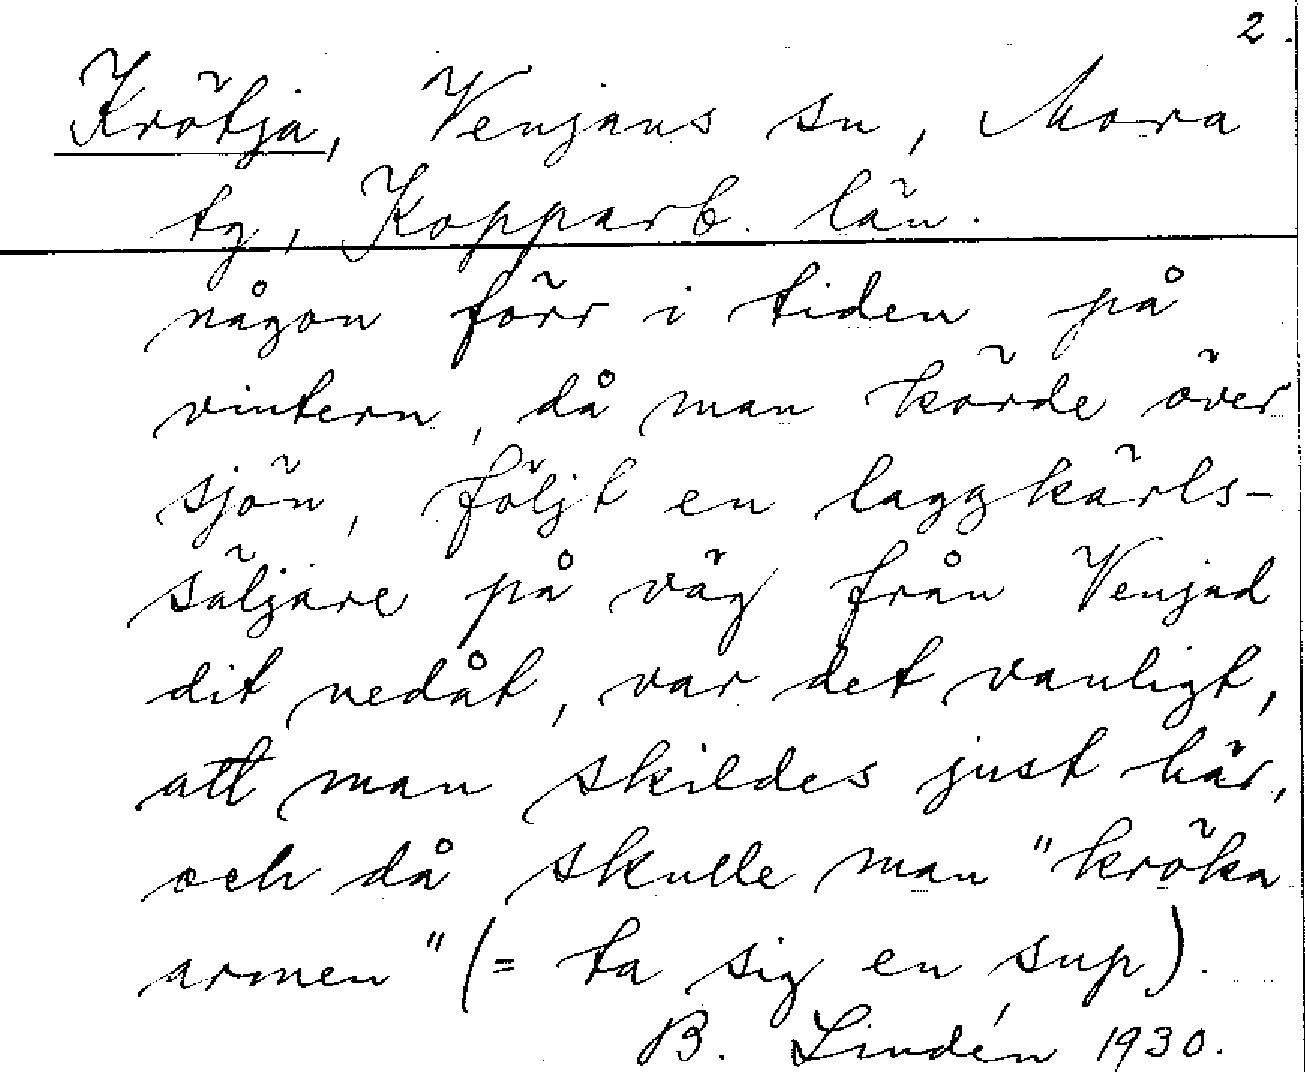 2.
Krötja, Venjans sn, Mora
tg, Kopparb. län.
någon förr i tiden på
vintern, då man körde över
sjön, följt en laggkärls-
säljare på väg från Venjad
dit nedåt, var det vanligt,
att man skildes just här,
och då skulle man "kröka
armen" (= ta sig en sup).
B. Lindén 1930.